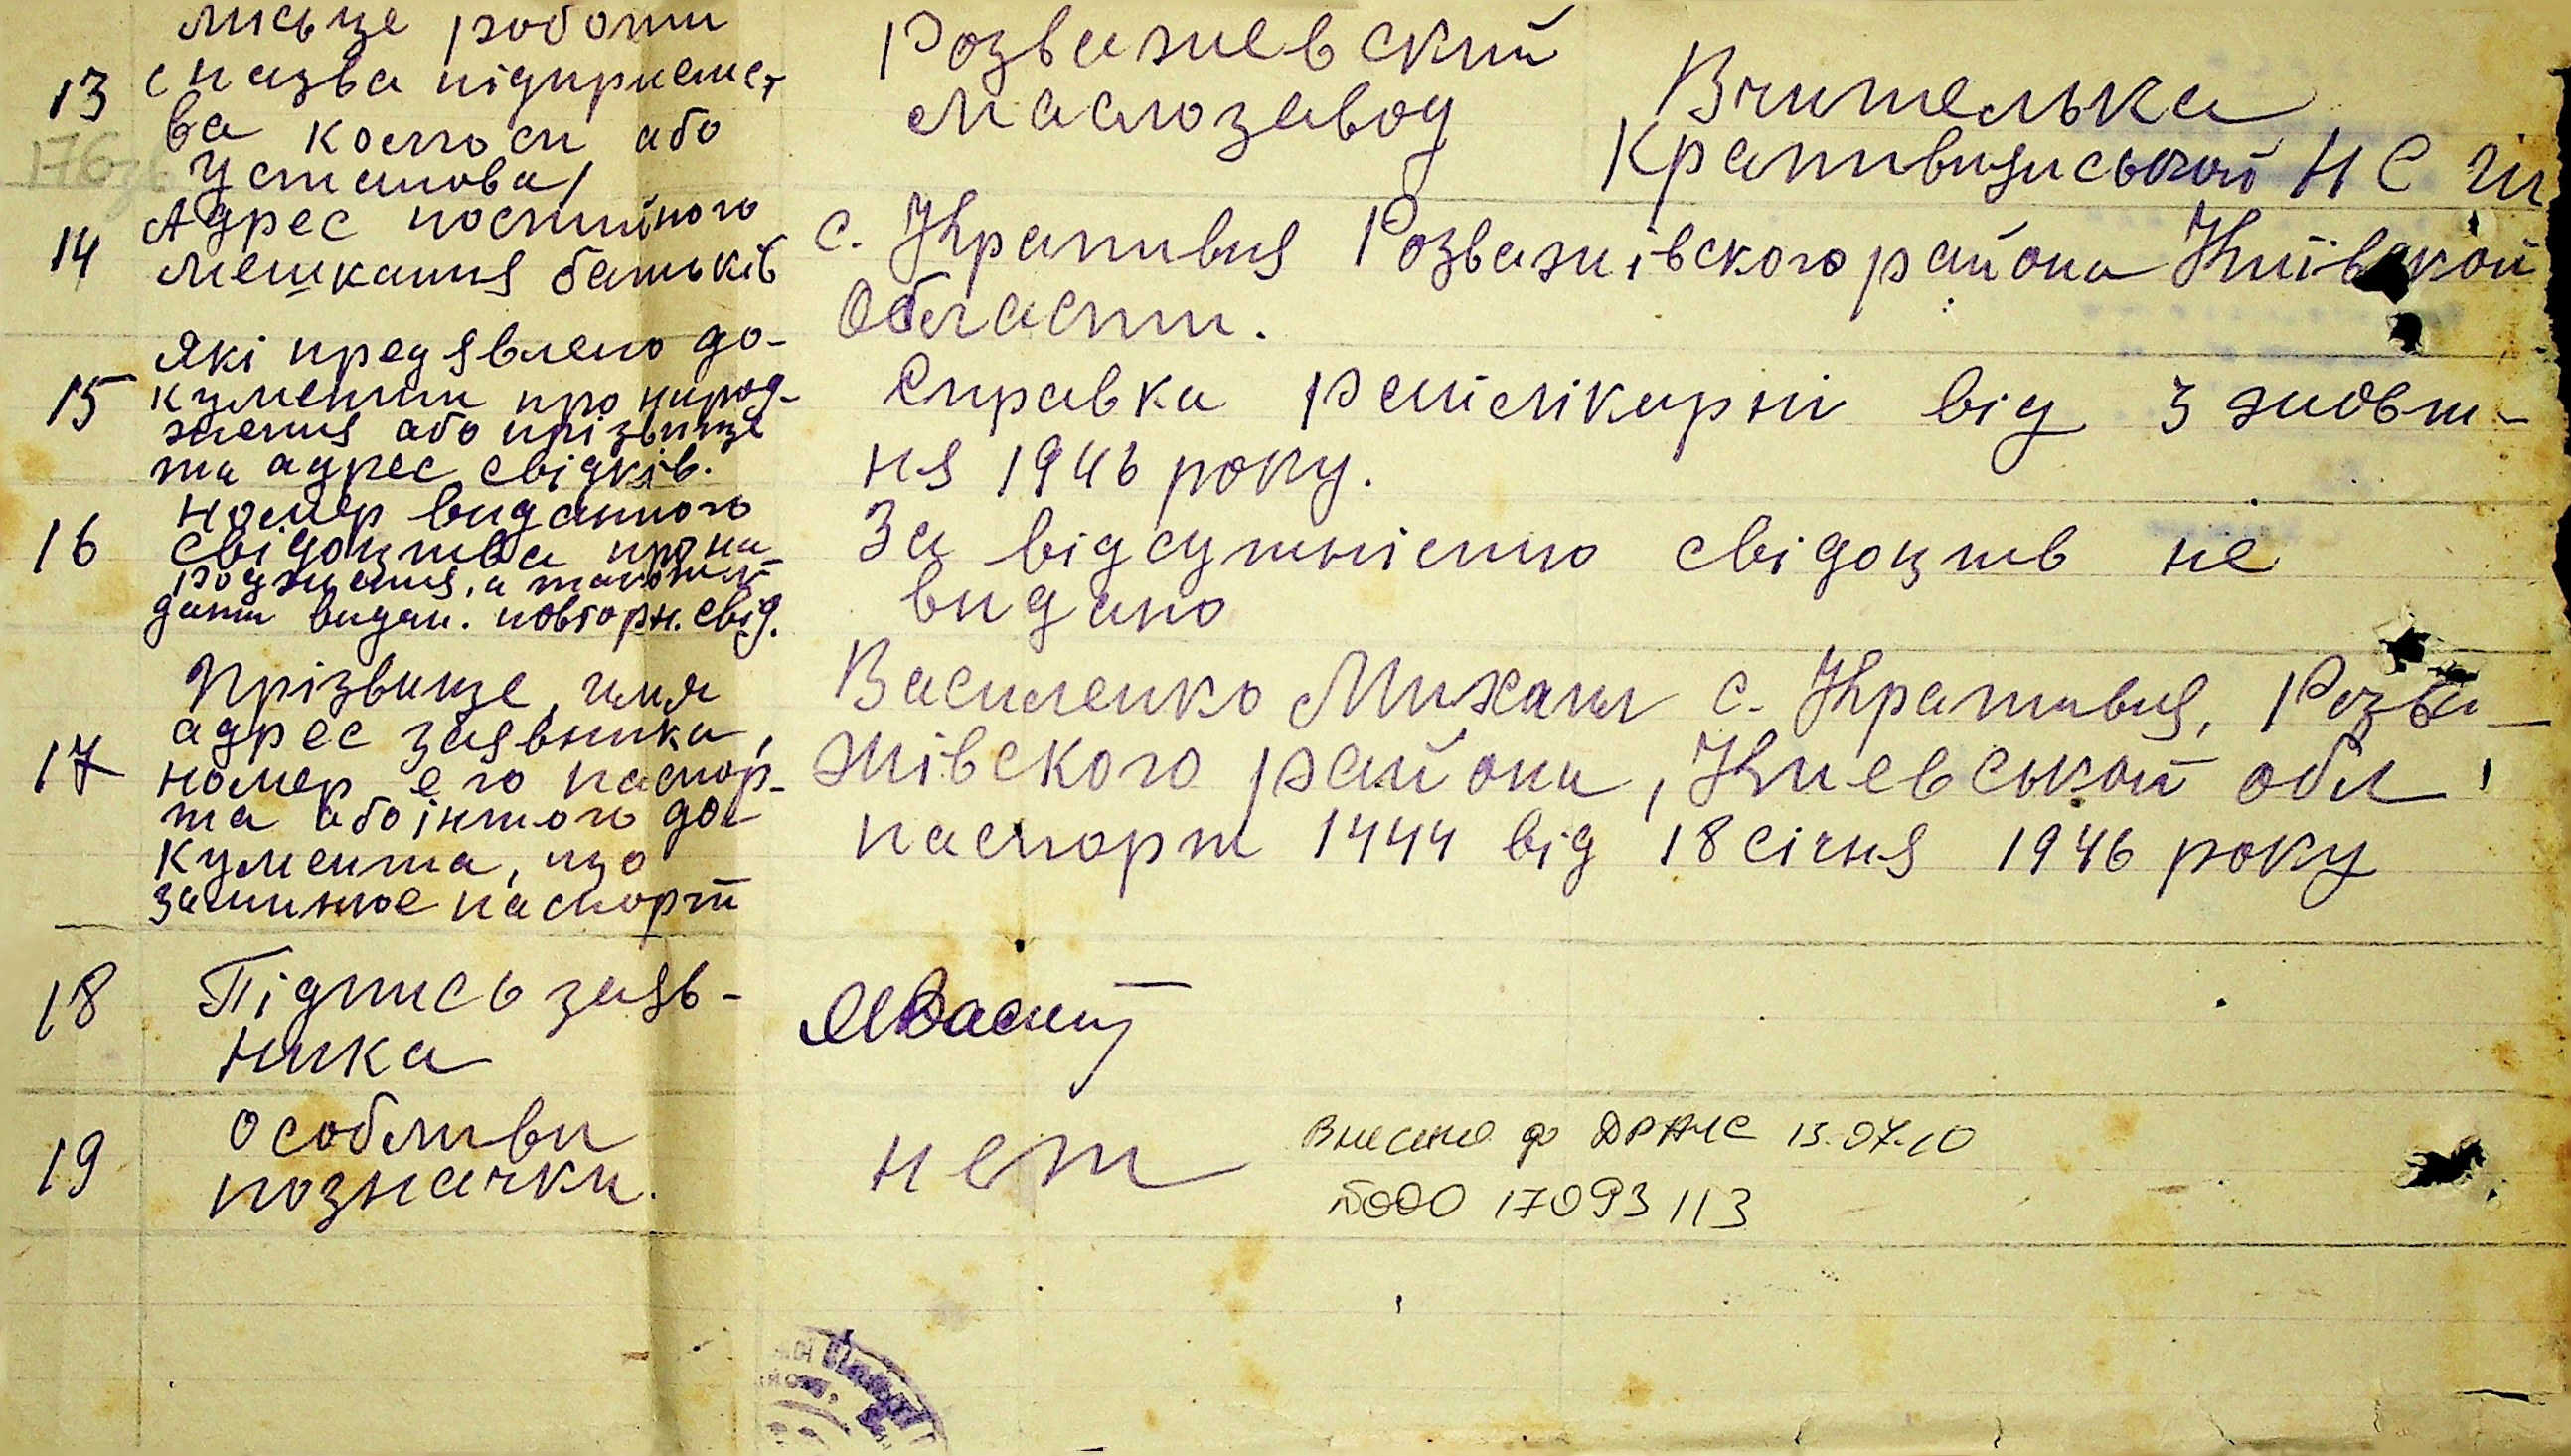 місце роботи
13 (назва підприємст
ва колгосп або
установа)
Розважевский
маслозавод
Вчителька
Крапивнянськой НСШ
14 Адрес постийного
мешкання батьків
с. Крапивня Розважівского района Київской
Области.
15 які предявлено до-
кументи про народ-
жения або прізвище
та адрес свідків.
Справка райлікарні від 3 жовт-
ня 1946 року.
16 Номер виданного
свідоцтва про на
родження, а також
дати видан. повторн. свід.
За відсутністю свідоцтв не
видано
17 Прізвище, имя
адрес заявника,
номер его паспор-
та або іншого до
кумента, що
заминюе паспорт
Василенко Михаил с. Крапивня, Розва-
жівского района, Киевськой обл
паспорт 1444 від 18 січня 1946 року
18 Підпись заяв-
ника
19 Особливи
позначки.
нет
Внесено до ДРАЦС 13.07.10
№000 17093113